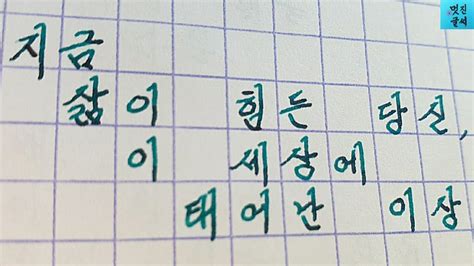 멋진
글씨
지금
삶이 힘든 당신,
이 세상에
태어난 이상